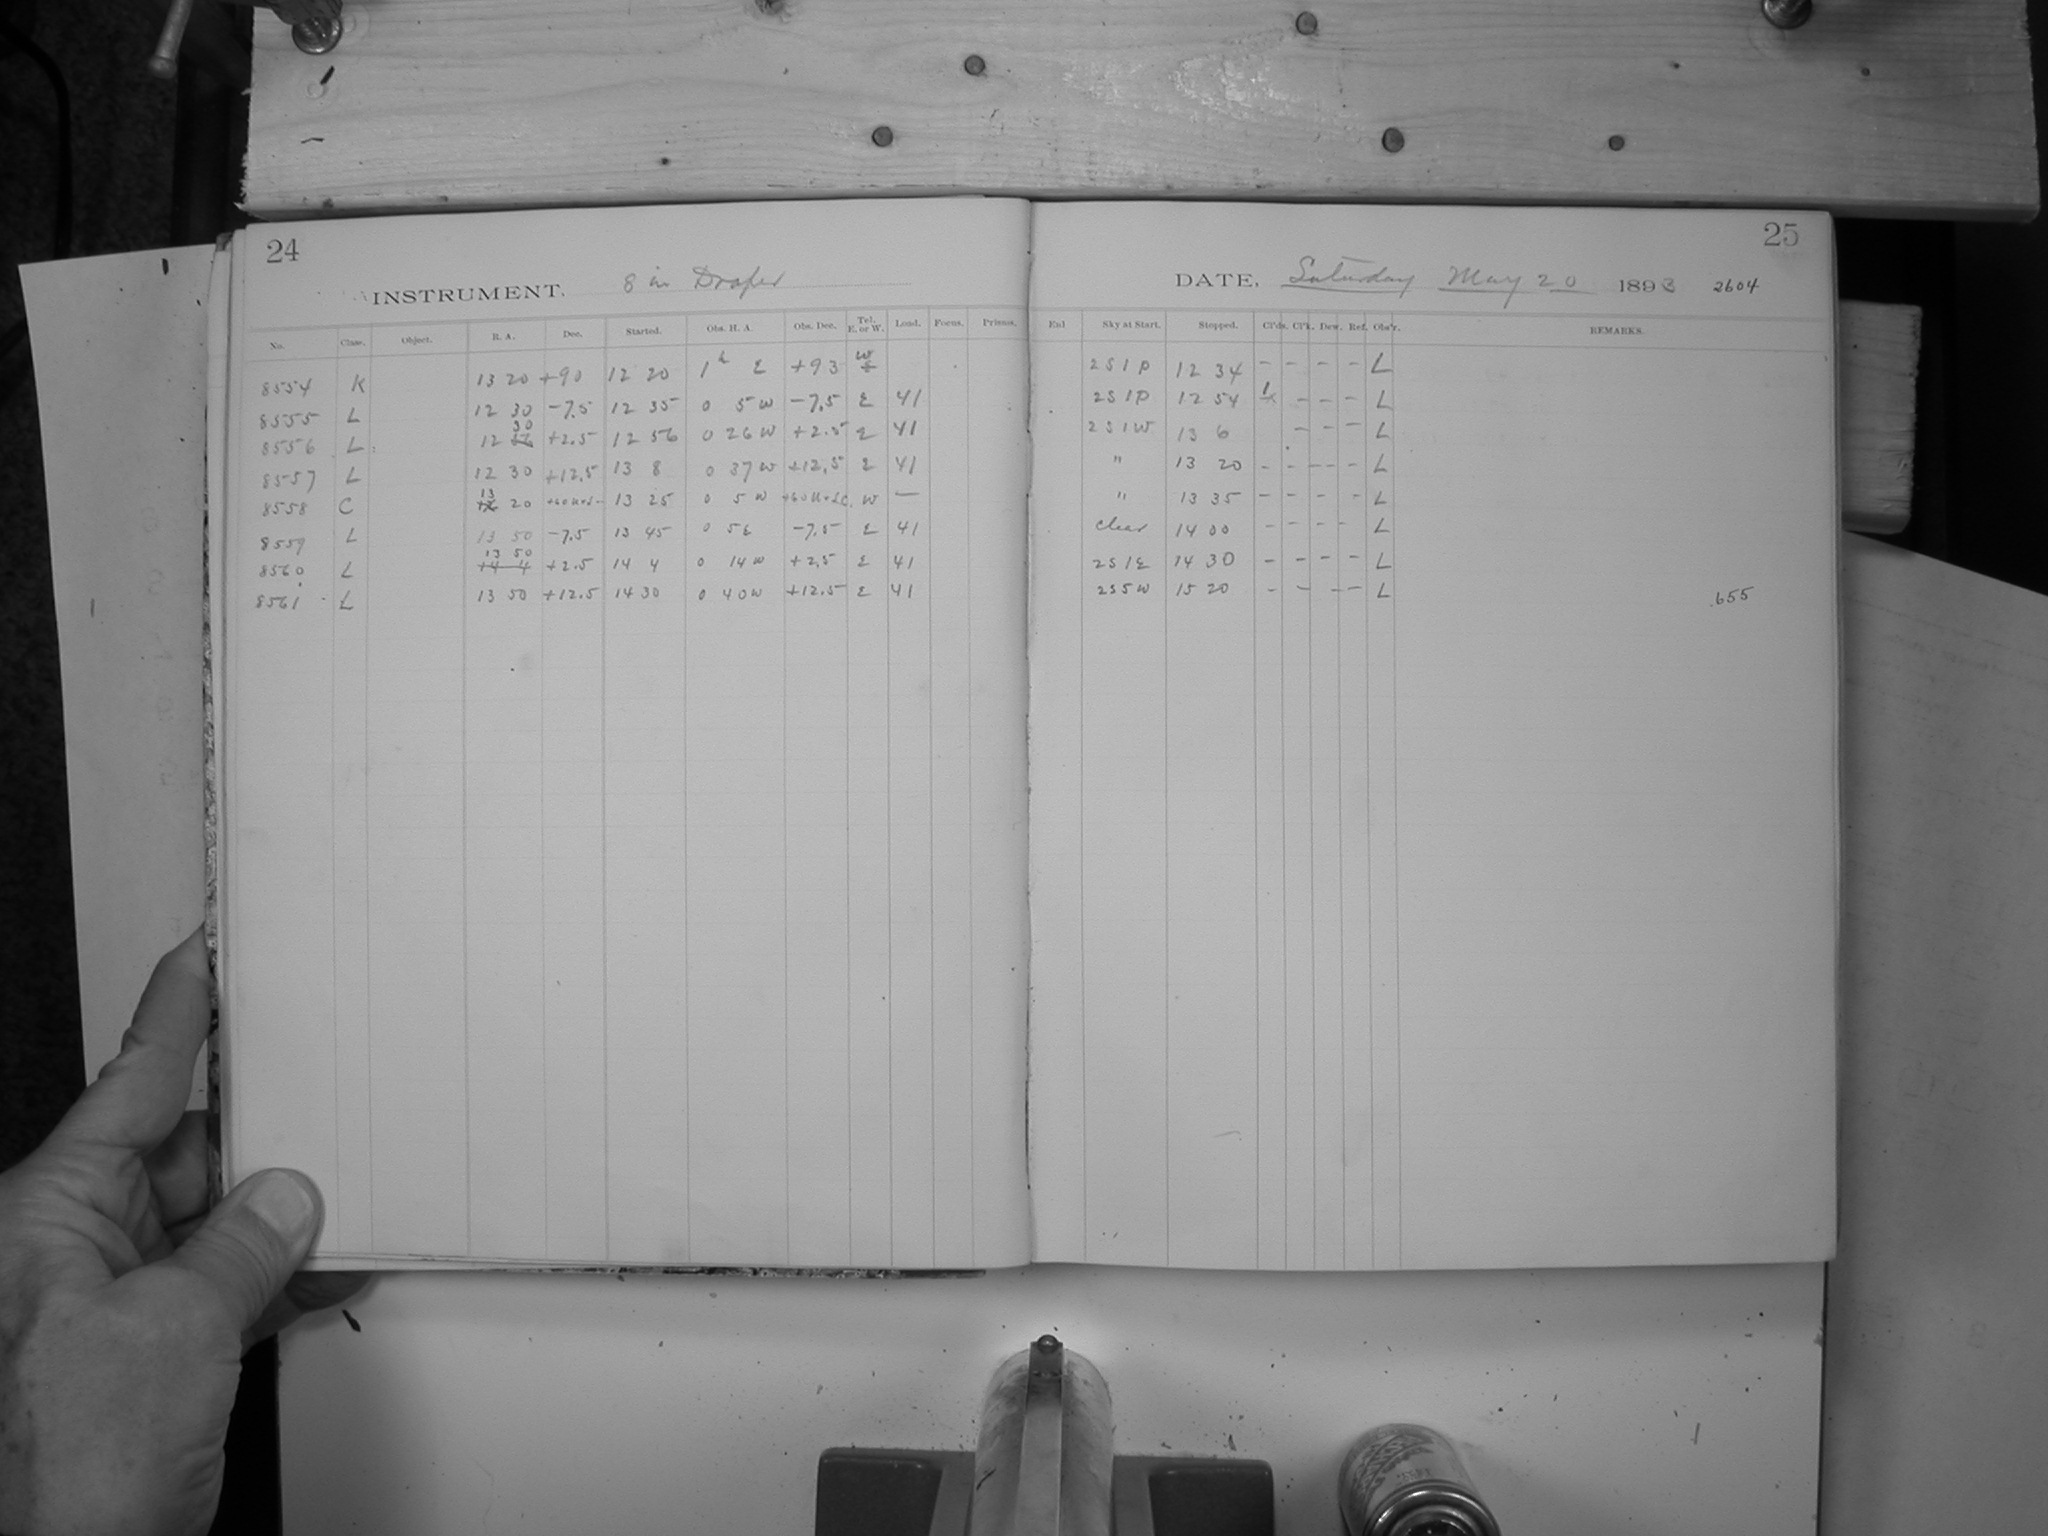 24
INSTRUMENT. 8 in Draper
No. Class. Object. R. A. Dec. Started. Obs. H. A. Obs. Dec. Tel. E. or W. Lond. Focus. Prisms.
8554 K 13 20 +90 12 20 1h E +93 W
8555 L 12 30 -7.5 12 35 0 5 W -7.5 E 41
8556 L 12 30 +2.5 12 56 0 26 W +2.5 E 41
8557 L 12 30 +12.5 13 8 0 37 W +12.5 E 41
8558 C 13 20 13 25 0 5 W W —
8559 L 13 50 -7.5 13 45 0 5 E -7.5 E 41
8560 L 13 50 14 4 +2.5 14 4 0 14 W +2.5 E 41
8561 L 13 50 +12.5 14 30 0 40 W +12.5 E 41
25
DATE, Saturday May 20 1893 2604
Enl Sky at Start. Stopped. Cl'ds. Cl'k. Dew. Ref. Obs'r. REMARKS.
2S1P 12 34 - - - - L
2S1P 12 54 1 - - - L
2S1W 13 6 - - - L
" 13 20 - - - - - L
" 13 35 - - - - L
clear 14 00 - - - - L
2S1E 14 30 - - - - L
2S5W 15 20 - - - - L
.655